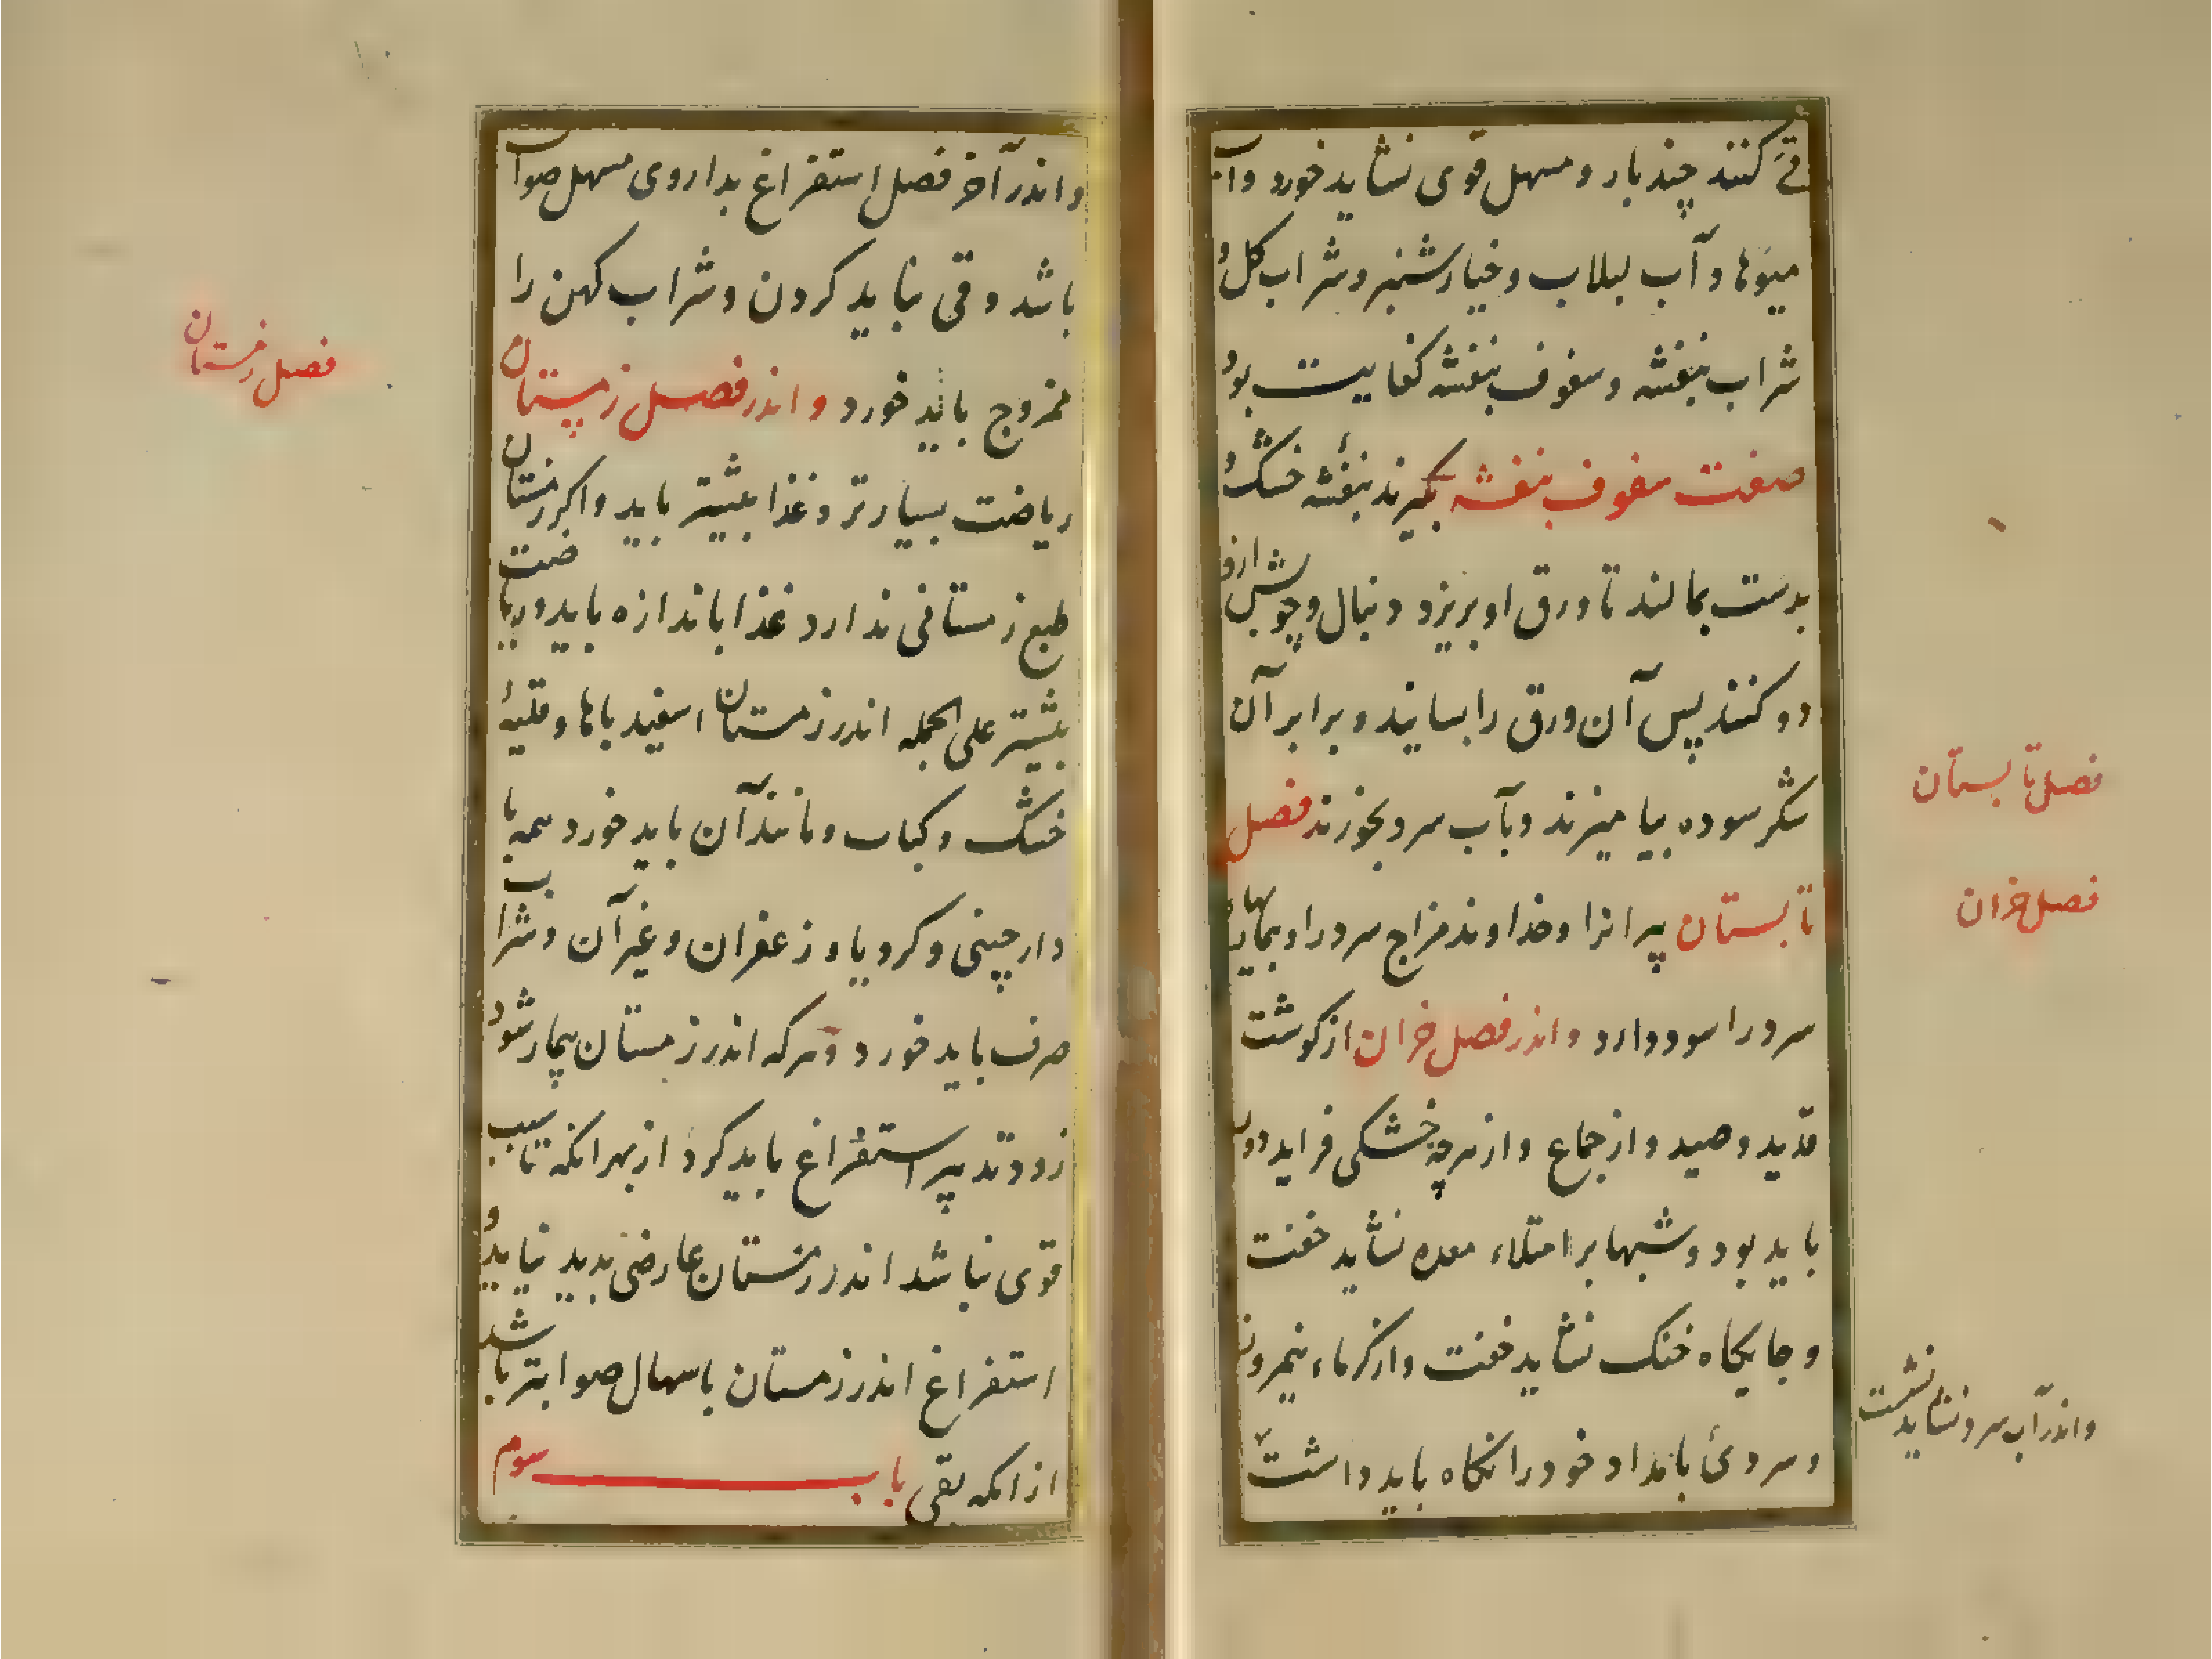 قی کنند چند بار و مسهل قوی نشاید خورد و آب
میوها و آب لبلاب و خیارشنبر و شراب کل و
شراب بنفشه و سفوف بنفشه کفایت بود
صفت سفوف بنفشه بکیرند بنفشه خشک و
بدست بمالند تا ورق او بریزد دنبال و چوبش ازو
دور کنند پس آن ورق را بسایند و برابر آن
شکر سوده بیامیزند و بآب سرد بخورند فصل
تابستان پیرانرا و خداوند مزاج سرد را و بیماریهاء
سرد را سود دارد و اندر فصل خزان از کوشت
قدید و صید و از جماع و از هرچه خشکی فزاید دور
باید بود و شبها بر امتلاء معده نشاید خفت
و جایکاه خنک نشاید خفت و از کرماء نیمروز
و سردئ بامداد خود را نکاه باید داشت
فصل تابستان
فصل خزان
و اندر آب سرد نشاید نشست
و اندر آخر فصل استفراغ بداروی مسهل صواب
باشد و قی نباید کردن و شراب کهن را
ممزوج باید خورد و اندر فصل زمستان
ریاضت بسیارتر و غذا بیشتر باید و اکر زمستان
طبع زمستانی ندارد غذا باندازه باید و ریاضت
بیشتر علی الجمله اندر زمستان اسفیدباها و قلیهٔ
خشک و کباب و مانند آن باید خورد همه با
دارچینی و کرویا و زعفران و غیر آن و شراب
صرف باید خورد و هرکه اندر زمستان بیمار شود
زود تدبیر استفراغ باید کرد از بهر آنکه تا سبب
قوی نباشد اندر زمستان عارضی پدید نیاید و
استفراغ اندر زمستان باسهال صوابتر باشد
از آنکه بقی باب سوم
فصل زمستان